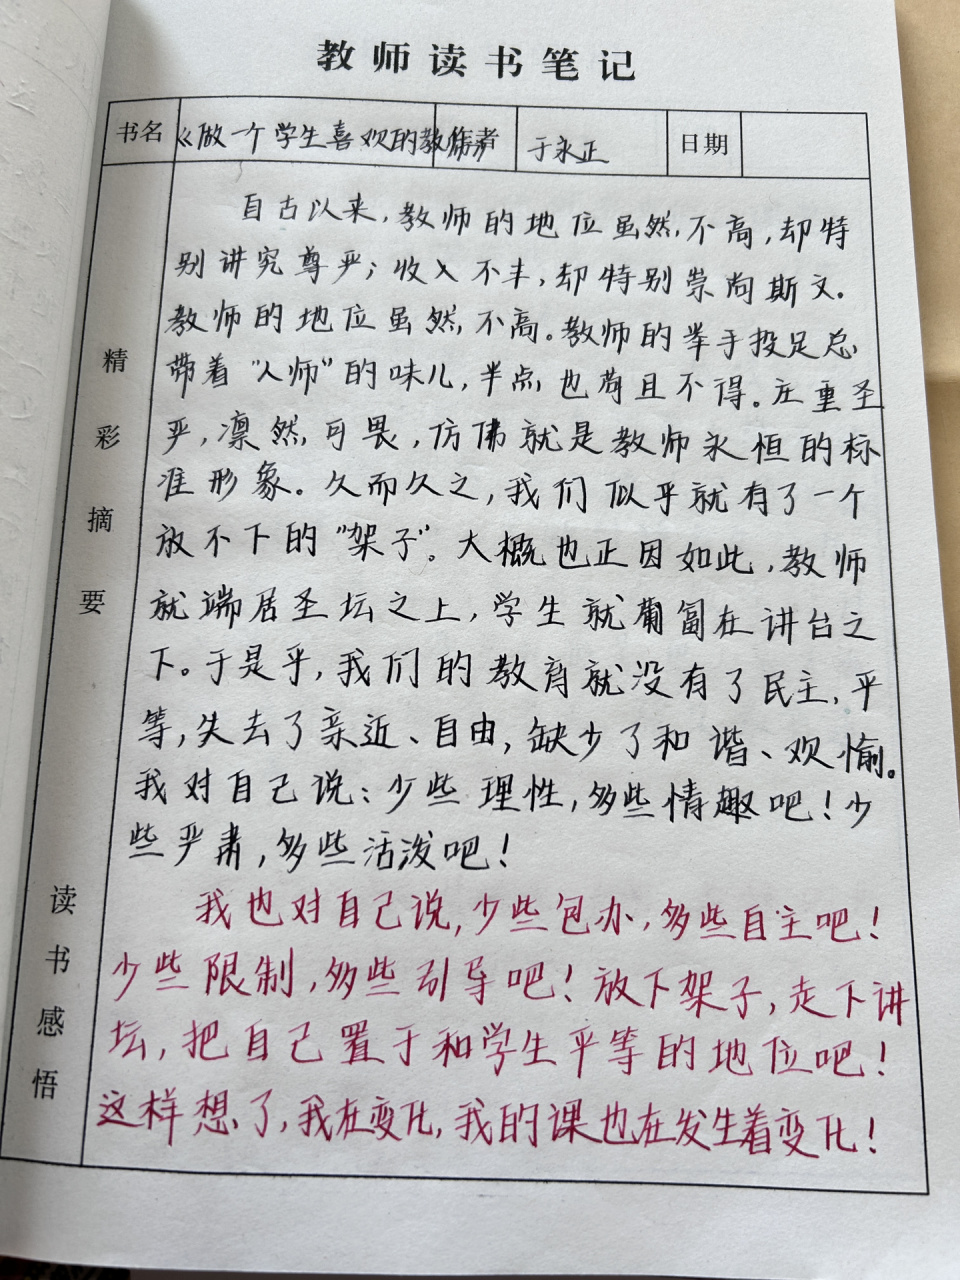 教师读书笔记
书名 《做一个学生喜欢的教师》 作者 于永正 日期
自古以来，教师的地位虽然不高，却特
别讲究尊严；收入不丰，却特别崇尚斯文.
教师的地位虽然不高。教师的举手投足总
带着“人师”的味儿，半点也苟且不得。庄重圣
严，凛然可畏，仿佛就是教师永恒的标
准形象。久而久之，我们似乎就有了一个
放不下的“架子”。大概也正因如此，教师
就端居圣坛之上，学生就匍匐在讲台之
下。于是乎，我们的教育就没有了民主，平
等，失去了亲近、自由，缺少了和谐、欢愉。
我对自己说：少些理性，多些情趣吧！少
些严肃，多些活泼吧！
我也对自己说，少些包办，多些自主吧！
少些限制，多些引导吧！放下架子，走下讲
坛，把自己置于和学生平等的地位吧！
这样想了，我在变化，我的课也在发生着变化！
精彩摘要
读书感悟